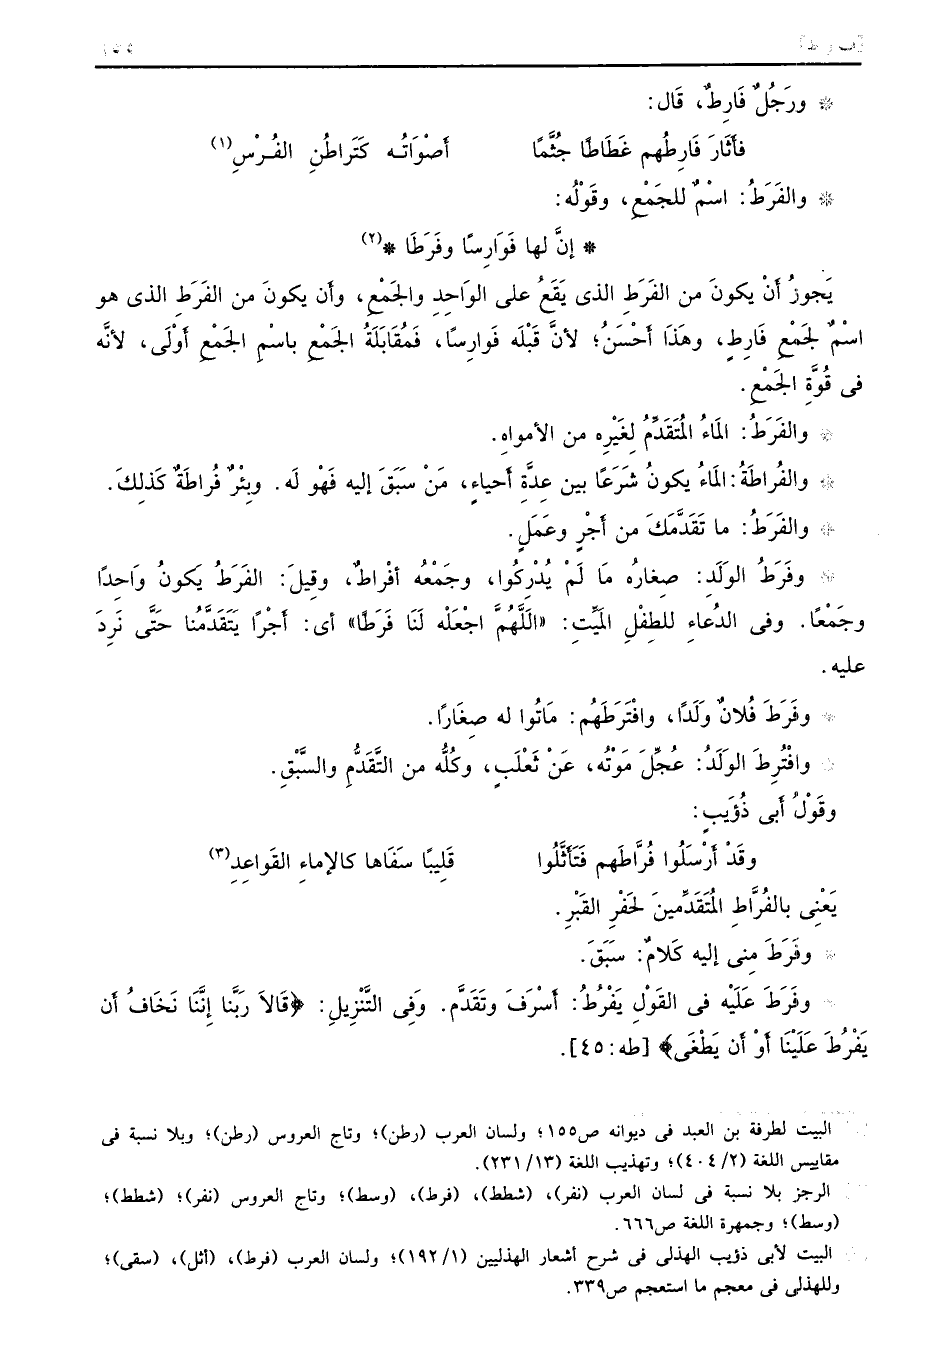 [ف ر ط]
* ورَجُلٌ فَارِطٌ، قَال:
فأثَارَ فَارِطُهم غَطَاطًا جثُمَّا أصْوَاتُـه كَتَراطُنِ الفُـرْسِ(١)
* والفَرَطُ: اسْمٌ للجَمْعِ، وقَوْلُه:
* إنَّ لها فَوَارِسًا وفَرَطَا *(٢)
يَجوزُ أنْ يكونَ من الفَرَطِ الذى يَقَعُ على الوَاحِدِ والجَمْعِ، وأن يكونَ من الفَرَطِ الذى هو
اسْمٌ لجَمْعِ فَارِطٍ، وهَذَا أحْسَنُ؛ لأنَّ قَبْلَه فَوارسًا، فَمُقَابَلَةُ الجَمْعِ باسْمِ الجَمْعِ أوْلَى، لأنَّه
فى قُوَّةِ الجَمْعِ.
* والفَرَطُ: المَاءُ المُتَقَدِّمُ لِغَيْرِه من الأمواهِ.
* والفُراطَةُ: المَاءُ يكونُ شَرَعًا بين عِدَّةِ أحياءٍ، مَنْ سَبَقَ إليه فَهْو لَه. وبِئْرٌ فُراطَةٌ كَذلِكَ.
* والفَرَطُ: ما تَقَدَّمَكَ من أجْرٍ وعَمَلٍ.
* وفَرَطُ الوَلَدِ: صغارُه مَا لَمْ يُدْرِكُوا، وجَمْعُه أفْراطٌ، وقِيلَ: الفَرَطُ يَكونُ وَاحِدًا
وجَمْعًا. وفى الدُعاءِ للطفْلِ المَيِّتِ: «اللَّهُمَّ اجْعَلْه لَنَا فَرَطًا» أى: أجْرًا يَتَقَدَّمُنا حَتَّى نَرِدَ
عليه.
* وفَرَطَ فُلانٌ وَلَدًا، وافْتَرَطَهُم: مَاتُوا له صِغَارًا.
* وافْتُرِطَ الولَدُ: عُجِّلَ مَوْتُه، عَنْ ثَعْلَبٍ، وكُلُّه من التَّقَدُّمِ والسَّبْقِ.
وقَوْلُ أبى ذُؤَيبٍ:
وقَدْ أرْسَلُوا فُرَّاطَهم فَتَأثَّلُوا قَلِيبًا سَفَاها كالإماءِ القَواعِدِ(٣)
يَعْنِى بالفُرَّاطِ المُتَقَدِّمينَ لحَفْرِ القَبْرِ.
* وفَرَطَ مِنى إليه كَلامٌ: سَبَقَ.
* وفَرَطَ عَلَيْه فى القَوْلِ يَفْرُطُ: أسْرَفَ وتَقَدَّم. وَفِى التَّنْزِيلِ: ﴿قَالاَ رَبَّنَا إنَّنَا نَخَافُ أن
يَفْرُطَ عَلَيْنَا أوْ أن يَطْغَى﴾ [طه: ٤٥].
البيت لطرفة بن العبد فى ديوانه ص١٥٥؛ ولسان العرب (رطن)؛ وتاج العروس (رطن)؛ وبلا نسبة فى
مقاييس اللغة (٢/ ٤٠٤)؛ وتهذيب اللغة (١٣/ ٢٣١).
الرجز بلا نسبة فى لسان العرب (نفر)، (شطط)، (فرط)، (وسط)؛ وتاج العروس (نفر)؛ (شطط)؛
(وسط)؛ وجمهرة اللغة ص٦٦٦.
البيت لأبى ذؤيب الهذلى فى شرح أشعار الهذليين (١/ ١٩٢)؛ ولسان العرب (فرط)، (أثل)، (سقى)؛
وللهذلى فى معجم ما استعجم ص٣٣٩.